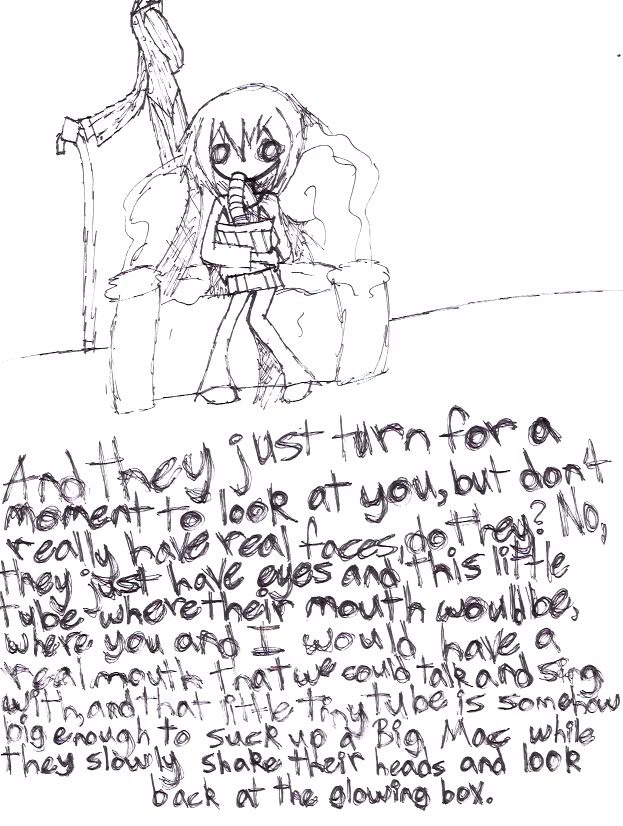 And they just turn for a
moment to look at you, but don't
really have real faces, do they? No,
they just have eyes and this little
tube where their mouth would be,
where you and I would have a
real mouth that we could talk and sing
with, and that little tiny tube is somehow
big enough to suck up a Big Mac while
they slowly shake their heads and look
back at the glowing box.